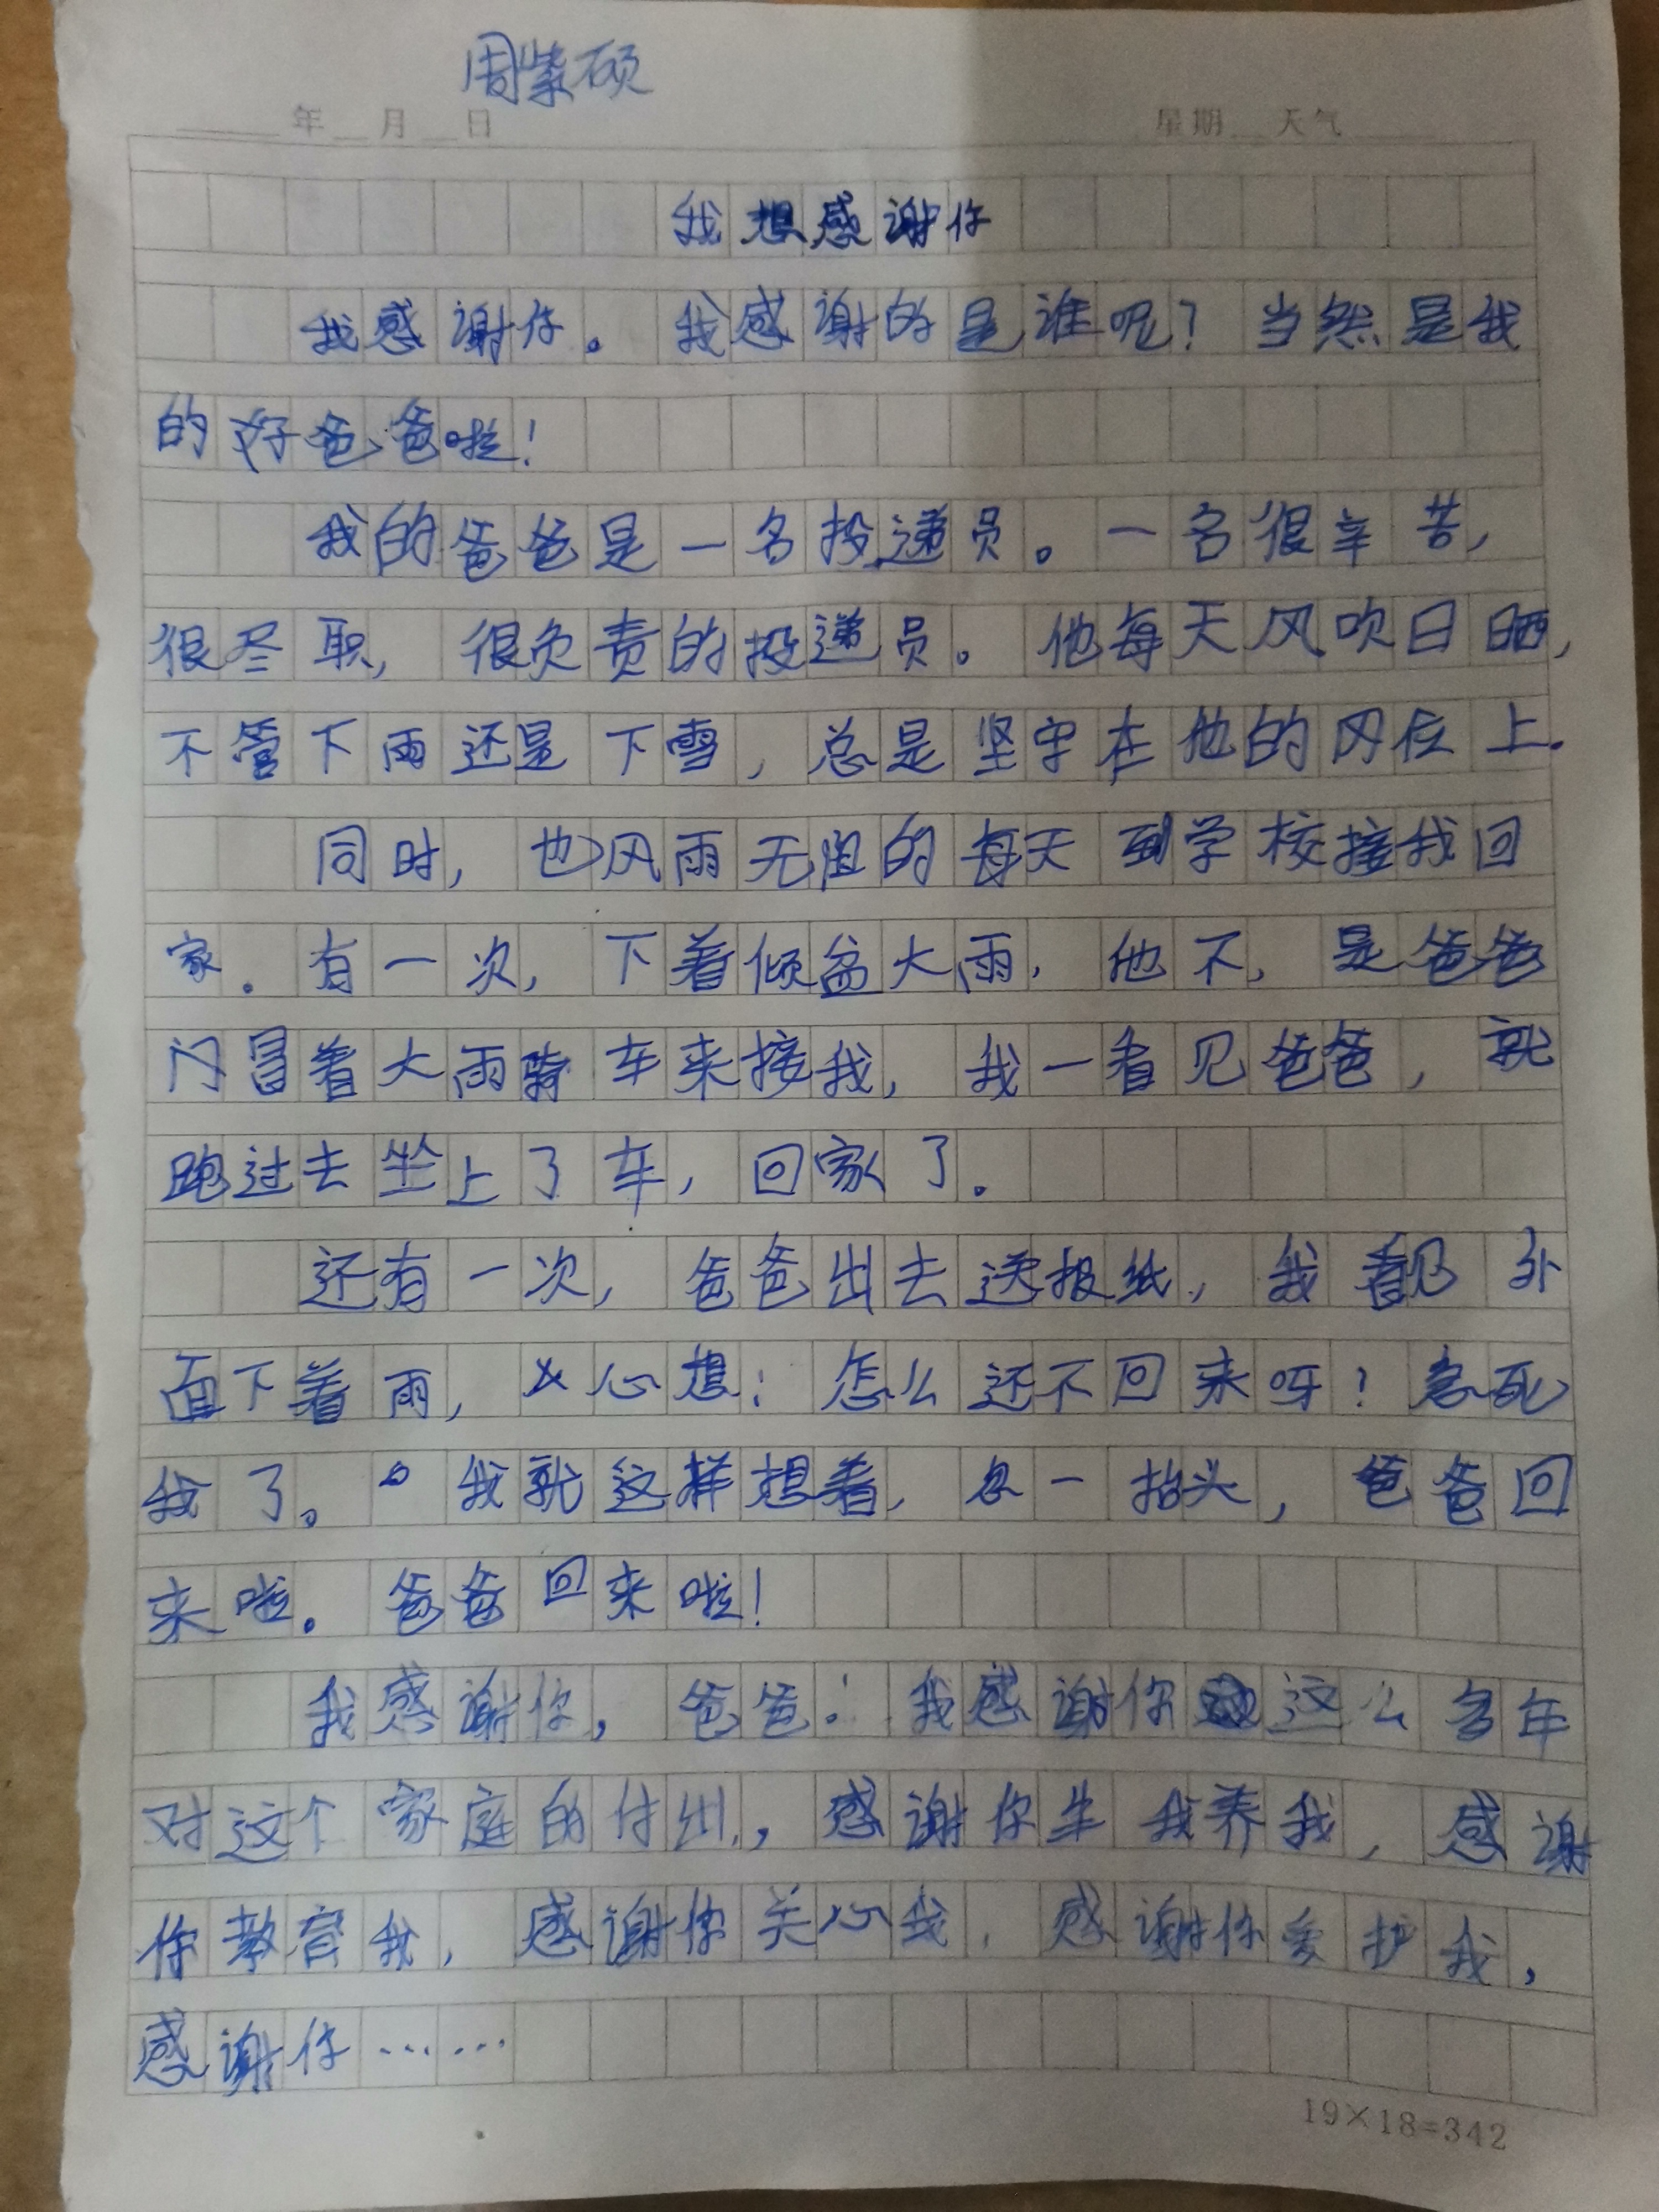 周紫硕
年 月 日 星期 天气
我想感谢你
我感谢你。我感谢的是谁呢？当然是我
的好爸爸啦！
我的爸爸是一名投递员。一名很辛苦，
很尽职，很负责的投递员。他每天风吹日晒，
不管下雨还是下雪，总是坚守在他的冈位上。
同时，也风雨无阻的每天到学校接我回
家。有一次，下着倾盆大雨，他不，是爸爸
门冒着大雨骑车来接我，我一看见爸爸，就
跑过去坐上了车，回家了。
还有一次，爸爸出去送报纸，我看见外
面下着雨，心想：怎么还不回来呀？急死
我了。我就这样想着，忽一抬头，爸爸回
来啦。爸爸回来啦！
我感谢你，爸爸！我感谢你这么多年
对这个家庭的付出，感谢你生我养我，感谢
你教育我，感谢你关心我，感谢你爱护我，
感谢你……
19×18=342